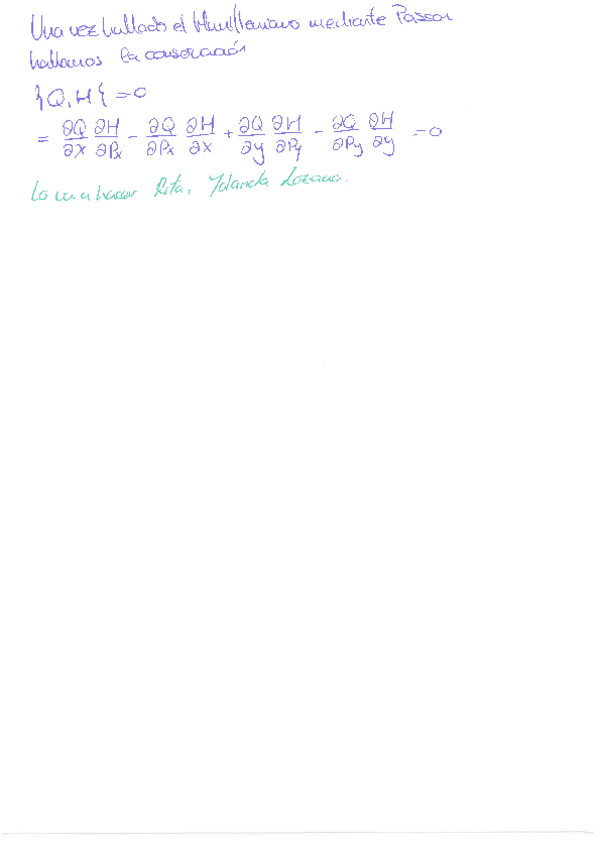 Una vez hallado el Hamiltoniano mediante Poisson
hallamos la conservación
}Q,H{ =0
= ∂Q/∂x ∂H/∂Px - ∂Q/∂Px ∂H/∂x + ∂Q/∂y ∂H/∂Py - ∂Q/∂Py ∂H/∂y =0
Lo va a hacer Rita, Yolanda Lozano.